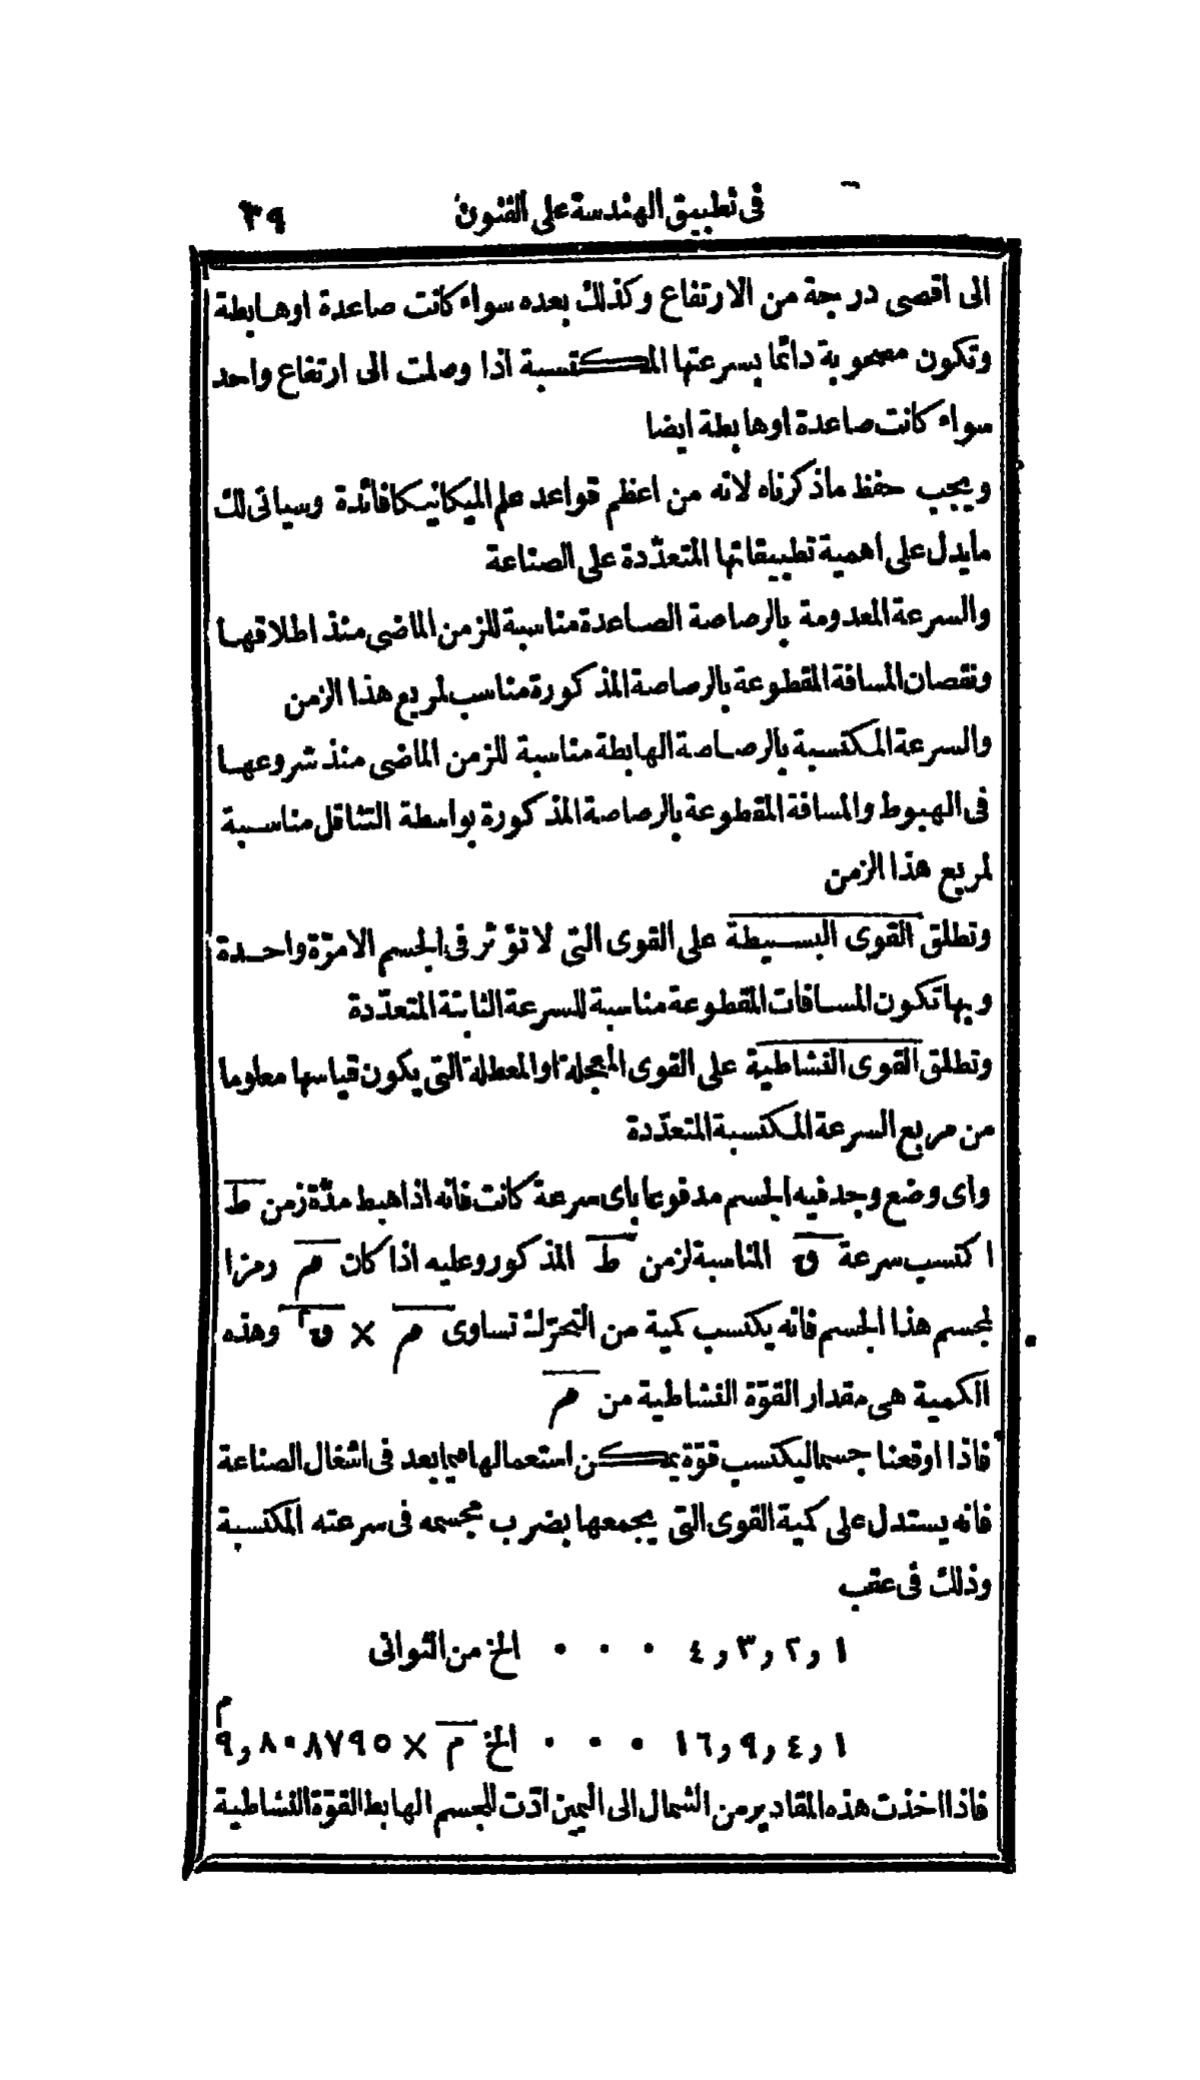 فى تطبيق الهندسة على الفنون ٣٩
الى اقصى درجة من الارتفاع وكذلك بعده سواء كانت صاعدة اوهابطة
وتكون مصحوبة دائما بسرعتها المكتسبة اذا وصلت الى ارتفاع واحد
سواء كانت صاعدة اوهابطة ايضا
ويجب حفظ ماذكرناه لانه من اعظم قواعد علم الميكانيكا فائدة وسياتى لك
مايدل على اهمية تطبيقاتها المتعدّدة على الصناعة
والسرعة المعدومة بالرصاصة الصاعدة مناسبة للزمن الماضى منذ اطلاقها
ونقصان المسافة المقطوعة بالرصاصة المذكورة مناسب لمربع هذا الزمن
والسرعة المكتسبة بالرصاصة الهابطة مناسبة للزمن الماضى منذ شروعها
فى الهبوط والمسافة المقطوعة بالرصاصة المذكورة بواسطة التثاقل مناسبة
لمربع هذا الزمن
وتطلق القوى البسيطة على القوى التى لا تؤثر فى الجسم الامرّة واحدة
وبها تكون المسافات المقطوعة مناسبة للسرعة الثابتة المتعدّدة
وتطلق القوى النشاطية على القوى المعجلة او المعطلة التى يكون قياسها معلوما
من مربع السرعة المكتسبة المتعدّدة
واى وضع وجد فيه الجسم مدفوعا باى سرعة كانت فانه اذا هبط مدّة زمن ط
اكتسب سرعة ق المناسبة لزمن ط المذكور وعليه اذا كان م رمزا
لمجسم هذا الجسم فانه يكتسب كمية من التحرّك تساوى م × ق٢ وهذه
الكمية هى مقدار القوّة النشاطية من م
فاذا اوقعنا جسما ليكتسب قوّة يمكن استعمالها فيما بعد فى اشغال الصناعة
فانه يستدل على كمية القوى التى يجمعها بضرب مجسمه فى سرعته المكتسبة
وذلك فى عقب
١ و ٢ و ٣ و ٤ ٠ ٠ ٠ الخ من الثوانى
١ و ٤ و ٩ و ١٦ ٠ ٠ ٠ الخ م × ٩م و ٨٠٨٧٩٥
فاذا اخذت هذه المقادير من الشمال الى اليمين ادّت للجسم الهابط القوّة النشاطية